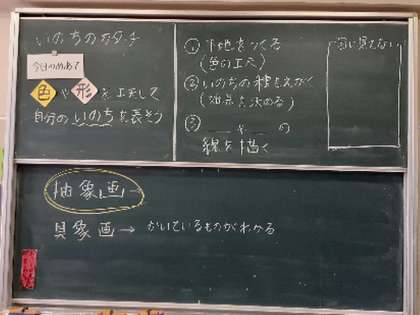 いのちのカタチ
今日のめあて
色や形を工夫して
自分のいのちを表そう
① 下地をつくる
(色の工夫)
② いのちの種をえがく
(始点を決める)
③ ＿＿や＿＿の
線を描く
目に見えない
抽象画→
具象画→ かいているものがわかる